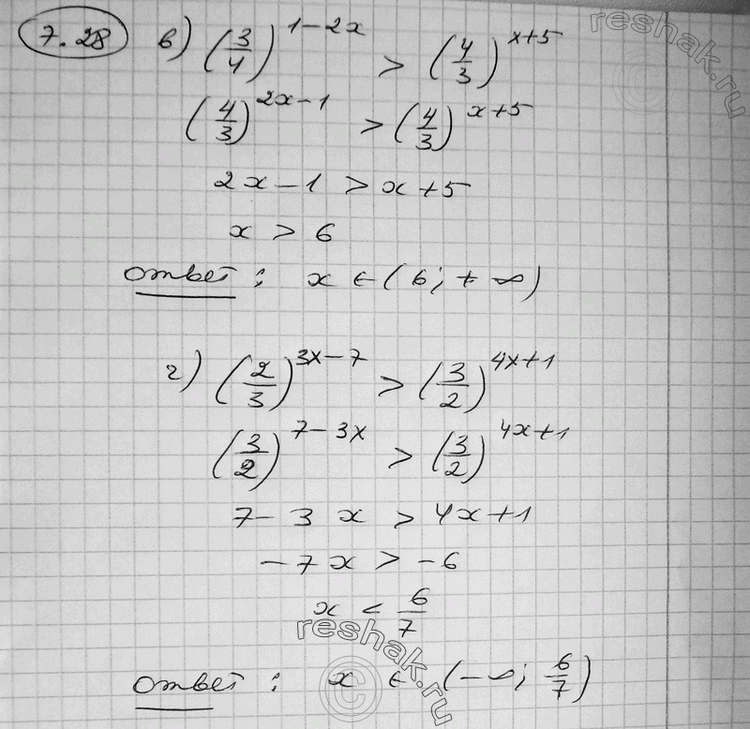 7.28 в) (3/4)^(1-2x) > (4/3)^(x+5)
(4/3)^(2x-1) > (4/3)^(x+5)
2x-1 > x+5
x > 6
ответ: x ∈ (6; +∞)
г) (2/3)^(3x-7) > (3/2)^(4x+1)
(3/2)^(7-3x) > (3/2)^(4x+1)
7-3x > 4x+1
-7x > -6
x < 6/7
ответ: x ∈ (-∞; 6/7)
reshak.ru
©
reshak.ru
©